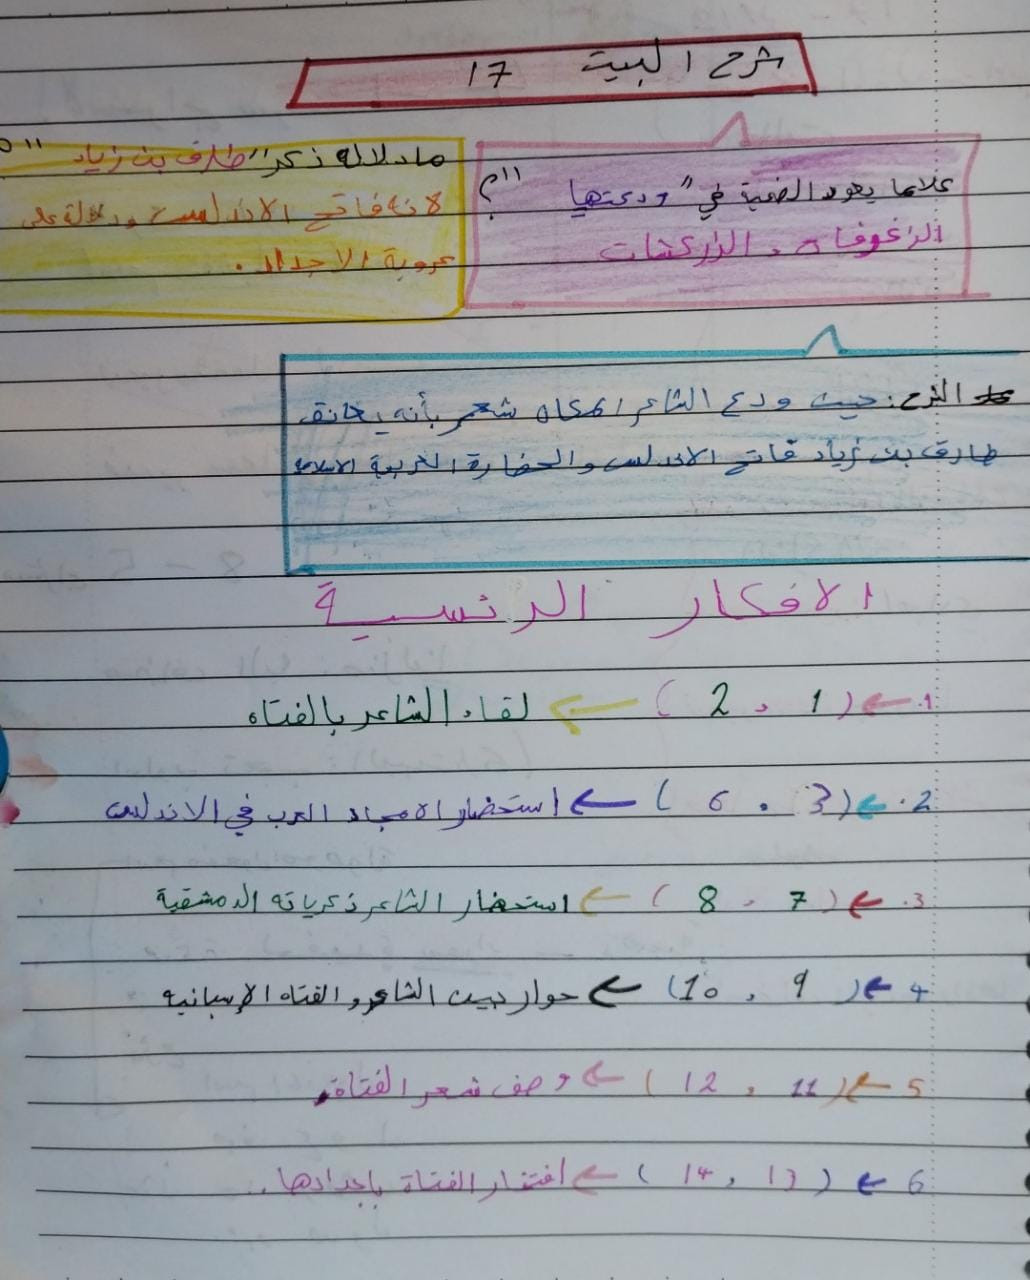 شرح البيت 17
علاما يعود الضمية في "ودعتها"؟
الزغوفات و الزركشات
ما دلاله ذكر "طارق بن زياد"؟
لانه فاتح الاندلس ودلالة على
عروبة الاجداد.
الشرح: حيث ودع الشاعر المكان شعر بأنه يعانق
طارق بن زياد فاتح الاندلس والحضارة العربية الاسلام
الافكار الرئسية
1. ← (1 ، 2) ← لقاء الشاعر بالفتاه
2. ← (3 ، 6) ← استحضار الامجاد العرب في الاندلس
3. ← (7 ، 8) ← استحضار الشاعر ذكرياته الدمشقية
4 ← (9 ، 10) ← حوار بين الشاعر و الفتاه الإسبانيه
5 ← (11 ، 12) ← وصف شعر الفتاة.
6 ← (13 ، 14) ← افتخار الفتاة باجدادها..